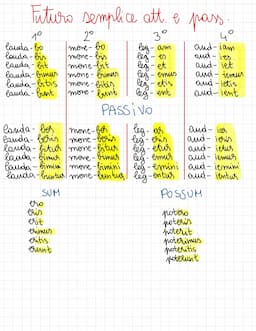 Futuro semplice att. e pass.
1° 2° 3° 4°
lauda-bo mone-bo leg-am aud-iam
lauda-bis mone-bis leg-es aud-ies
lauda-bit mone-bit leg-et aud-iet
lauda-bimus mone-bimus leg-emus aud-iemus
lauda-bitis mone-bitis leg-etis aud-ietis
lauda-bunt mone-bunt leg-ent aud-ient
PASSIVO
lauda-bor mone-bor leg-ar aud-iar
lauda-beris mone-beris leg-eris aud-ieris
lauda-bitur mone-bitur leg-etur aud-ietur
lauda-bimur mone-bimur leg-emur aud-iemur
lauda-bimini mone-bimini leg-emini aud-iemini
lauda-buntur mone-buntur leg-entur aud-ientur
SUM POSSUM
ero
eris potero
erit poteris
erimus poterit
eritis poterimus
erunt poteritis
poterunt